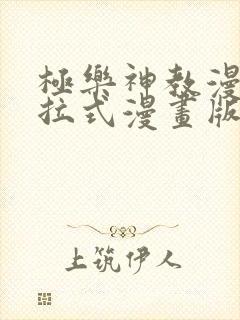 極樂神教漫
拉式漫畫版
上筑伊人